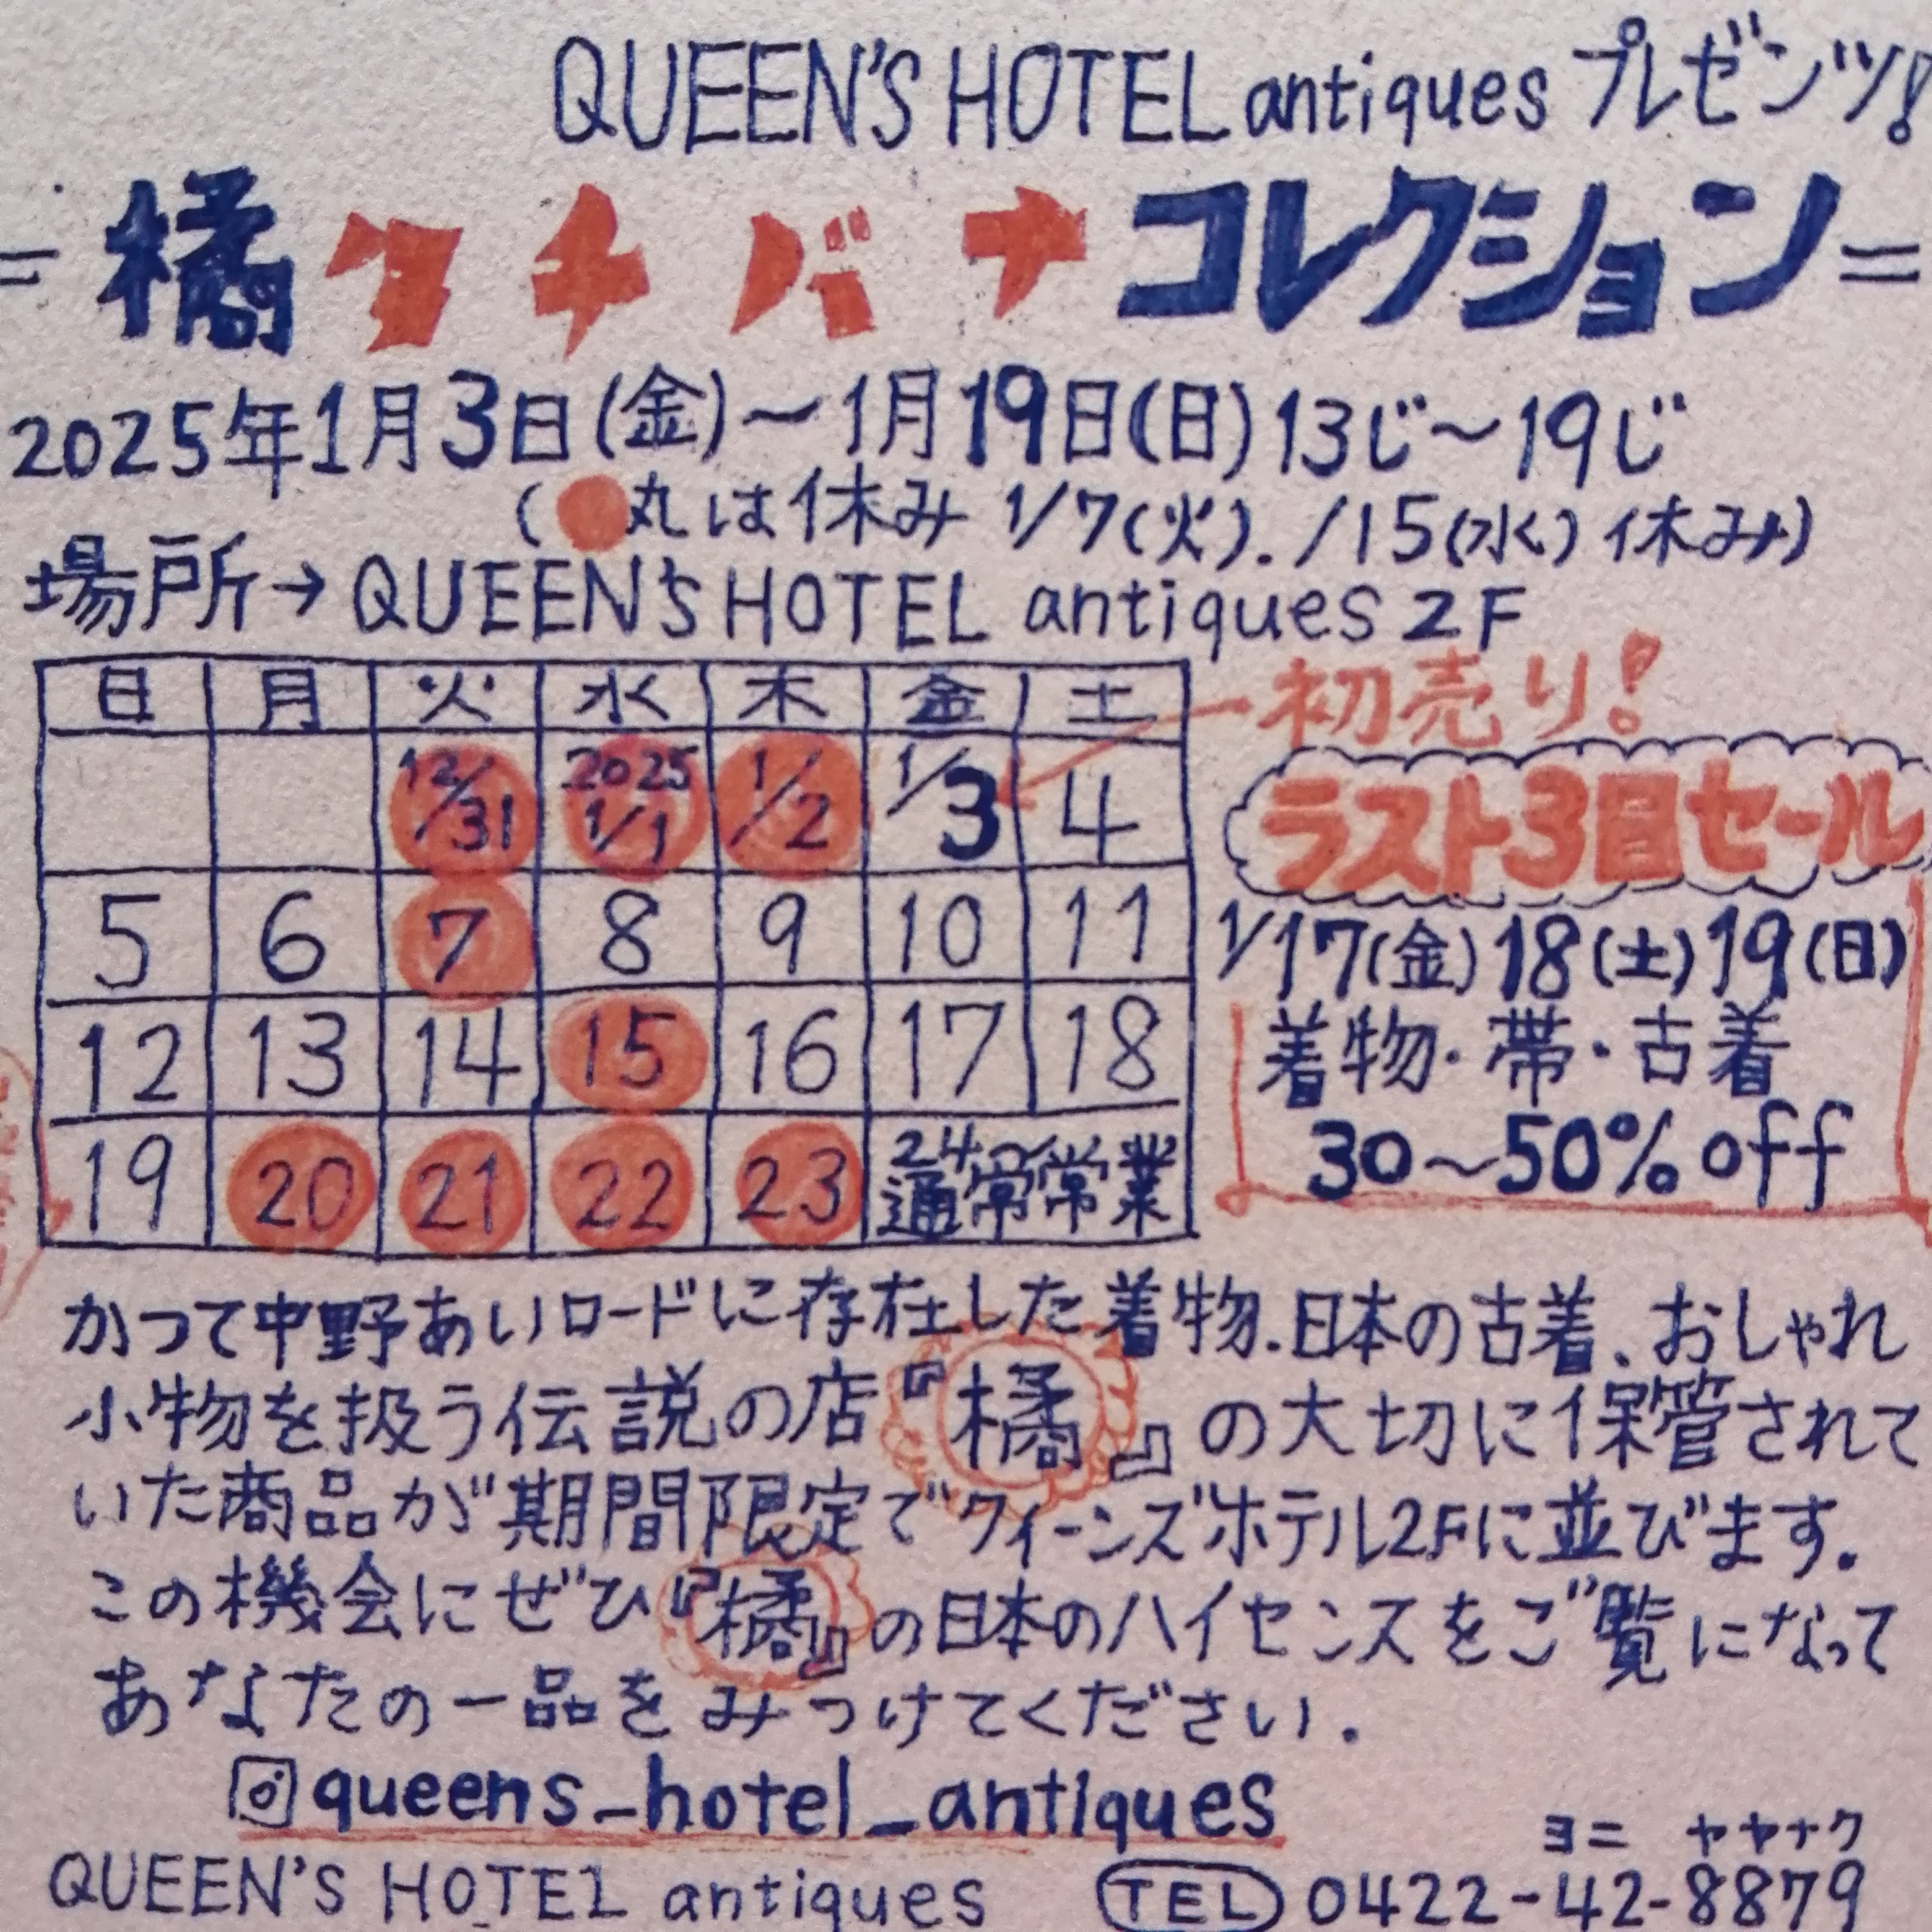 QUEEN'S HOTEL antiques プレゼンツ!
=橘タチバナコレクション=
2025年1月3日(金)〜1月19日(日)13じ〜19じ
(●丸は休み 1/7(火)./15(水)休み)
場所→QUEEN'S HOTEL antiques 2F
日 月 火 水 木 金 土
12/31 2025 1/1 1/2 1/3 4
5 6 7 8 9 10 11
12 13 14 15 16 17 18
19 20 21 22 23 24〜
通常営業
初売り!
ラスト3日セール
1/17(金)18(土)19(日)
着物・帯・古着
30〜50%off
かつて中野あいロードに存在した着物.日本の古着、おしゃれ
小物を扱う伝説の店『橘』の大切に保管されて
いた商品が期間限定でクィーンズホテル2Fに並びます.
この機会にぜひ『橘』の日本のハイセンスをご覧になって
あなたの一品をみつけてください.
queens_hotel_antiques
ヨニ ヤヤナク
QUEEN'S HOTEL antiques TEL 0422-42-8879